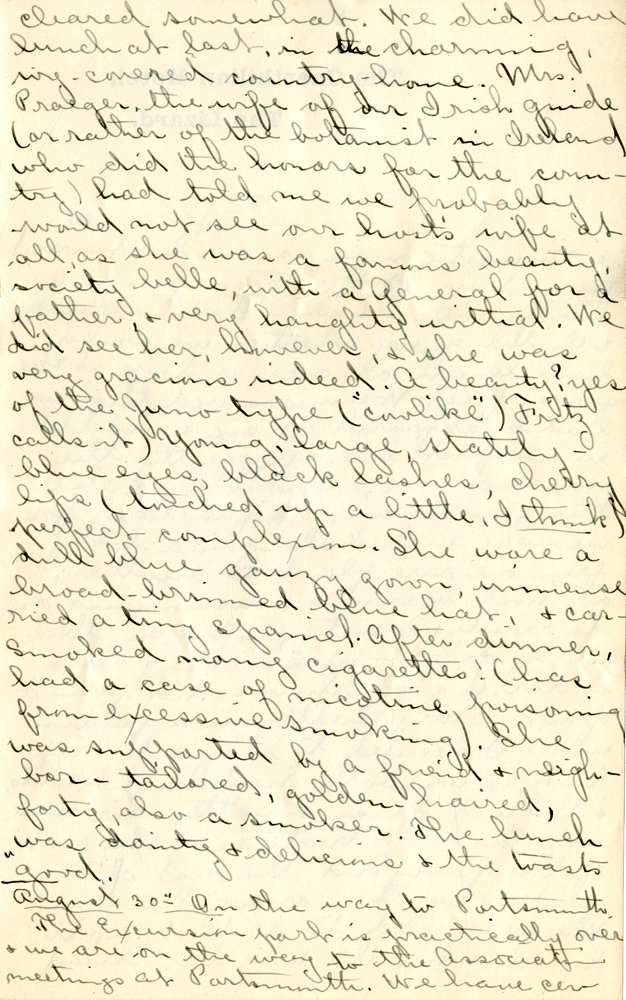 cleared somewhat. We did have
lunch at last, in the charming,
ivy-covered country home. Mrs.
Praeger, the wife of our Irish guide
(or rather of the botanist in Ireland
who did the honors for the coun-
try) had told me we probably
would not see our host's wife at
all, as she was a famous beauty,
society belle, with a General for a
father, & very haughty withal. We
did see her, however, & she was
very gracious indeed. A beauty? yes
of the Juno type ("cowlike") Fritz
calls it) Young, large, stately-
blue eyes, black lashes, cherry
lips (touched up a little, I think)
perfect complexion. She wore a
dull blue gauzy gown, immense
broad-brimmed blue hat, & car-
ried a tiny spaniel. After dinner,
smoked many cigarettes! (has
had a case of nicotine poisoning
from excessive smoking). She
was supported by a friend & neigh-
bor - tailored, golden-haired,
forty, also a smoker. The lunch
was dainty & delicious & the toasts
"good.
August 30th On the way to Portsmouth.
The Excursion part is practically over
& we are on the way to the Associat-
meetings at Portsmouth. We have cer